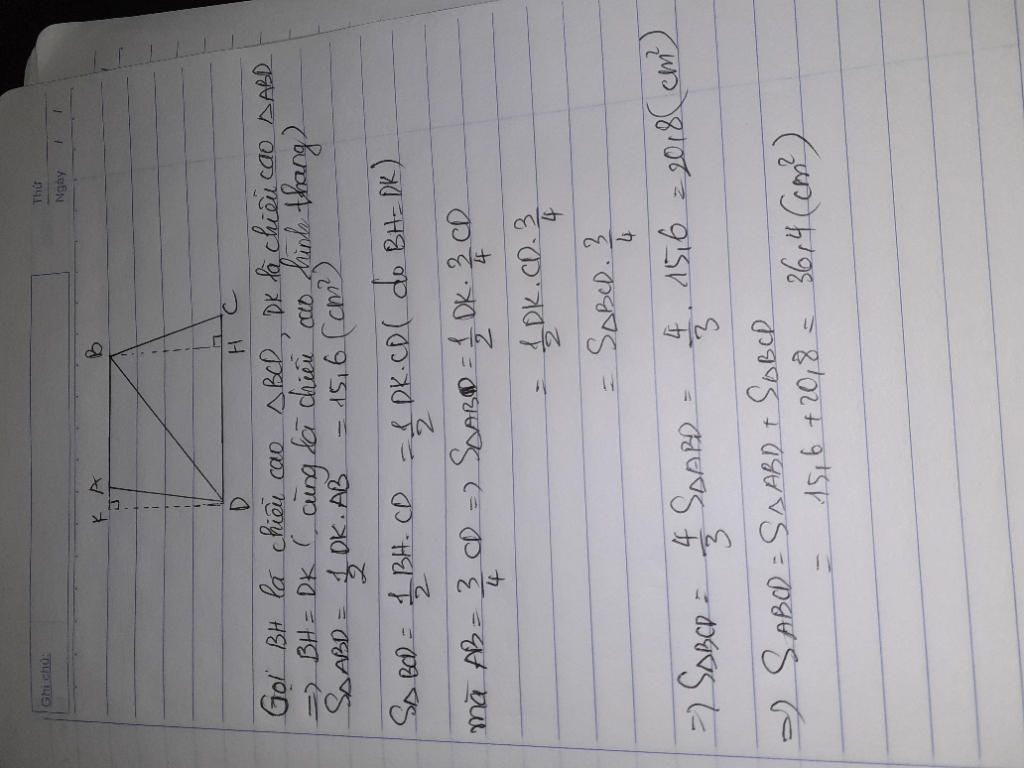 Ghi chú:
Thứ
Ngày / /
K A B
D H C
Gọi BH là chiều cao △BCD, DK là chiều cao △ABD
=> BH = DK ( cùng là chiều cao hình thang)
S△ABD = 1/2 DK.AB = 15,6 (cm²)
S△BCD = 1/2 BH.CD = 1/2 DK.CD ( do BH=DK)
mà AB = 3/4 CD => S△ABD = 1/2 DK.3/4 CD
= 1/2 DK.CD.3/4
= S△BCD.3/4
=> S△BCD = 4/3 S△ABD = 4/3 . 15,6 = 20,8 (cm²)
=> SABCD = S△ABD + S△BCD
= 15,6 + 20,8 = 36,4 (cm²)